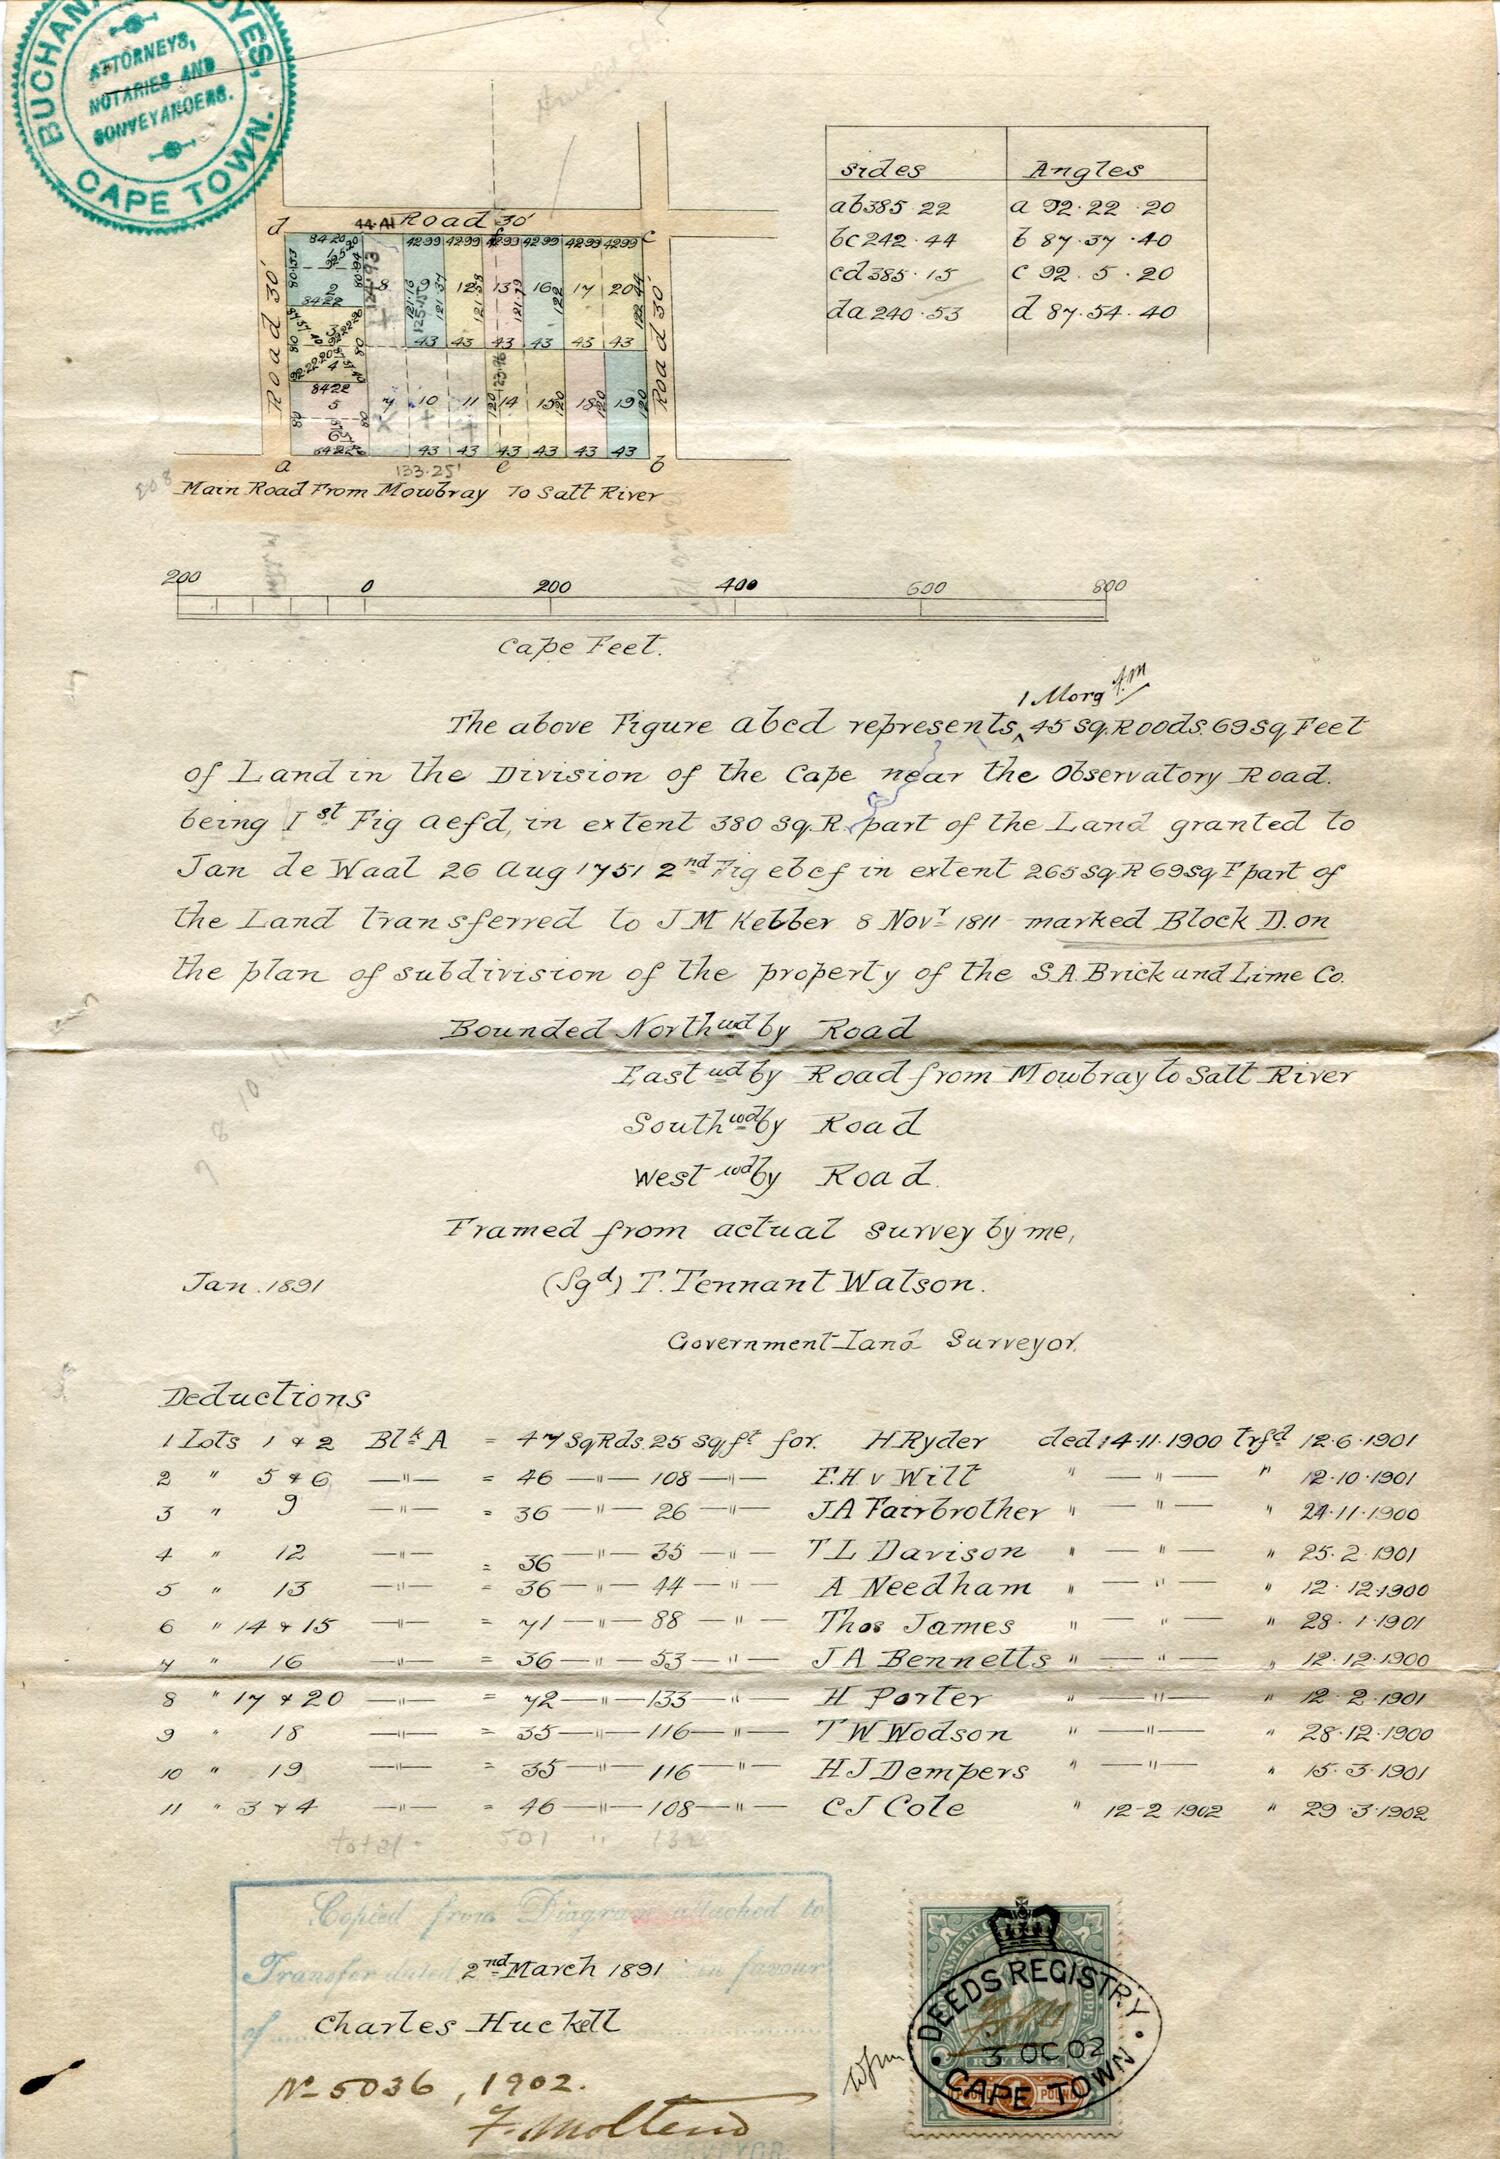 ATTORNEYS,
NOTARIES AND
CONVEYANCERS.
CAPE TOWN.
sides Angles
ab 385.22 a 92.22.20
bc 242.44 b 87.37.40
cd 385.15 c 92.5.20
da 240.53 d 87.54.40
d Road 30' c
42.99 42.99 42.99 42.99 42.99 42.99
Road 30'
2 8 9 12 13 16 17 20
84.22
43 43 43 43 43 43
Road 30'
3
4
84.22
5 7 10 11 14 15 18 19
6
43 43 43 43 43 43
a 133.25' e b
Main Road From Mowbray To Salt River
200 0 200 400 600 800
Cape Feet.
1 Morg
The above Figure abcd represents ‸ 45 Sq. Roods. 69 Sq Feet
of Land in the Division of the Cape near the Observatory Road.
being 1st Fig aefd, in extent 380 Sq. R. part of the Land granted to
Jan de Waal 26 Aug 1751 2nd Fig ebcf in extent 265 Sq. R 69 Sq F part of
the Land transferred to J M Kebber 8 Novr 1811 marked Block D. on
the plan of subdivision of the property of the S.A. Brick and Lime Co.
Bounded Northwd by Road
Eastwd by Road from Mowbray to Salt River
Southwd by Road
Westwd by Road.
Framed from actual survey by me,
Jan. 1891 (Sgd) T. Tennant Watson.
Government Land Surveyor.
Deductions
1 Lots 1 & 2 Blk A = 47 Sq Rds. 25 Sq ft for. H Ryder ded 14.11.1900 trfd 12.6.1901
2 " 5 & 6 —"— = 46 —"— 108 —"— F.H v Witt " —"— " 12.10.1901
3 " 9 —"— = 36 —"— 26 —"— J A Fairbrother " —"— " 24.11.1900
4 " 12 —"— = 36 —"— 35 —"— T L Davison " —"— " 25.2.1901
5 " 13 —"— = 36 —"— 44 —"— A Needham " —"— " 12.12.1900
6 " 14 & 15 —"— = 71 —"— 88 —"— Thos James " —"— " 28.1.1901
7 " 16 —"— = 36 —"— 53 —"— J A Bennetts " —"— " 12.12.1900
8 " 17 & 20 —"— = 72 —"— 133 —"— H Porter " —"— " 12.2.1901
9 " 18 —"— = 35 —"— 116 —"— T W Wodson " —"— " 28.12.1900
10 " 19 —"— = 35 —"— 116 —"— H J Dempers " —"— " 15.3.1901
11 " 3 & 4 —"— = 46 —"— 108 —"— C J Cole " 12-2 1902 " 29.3.1902
total - 501 " 132
Copied from Diagram attached to
Transfer dated 2nd March 1891 in favour
of Charles Huckell
No 5036, 1902.
F. Molteno
SURVEYOR
DEEDS REGISTRY
3 OC 02
CAPE TOWN